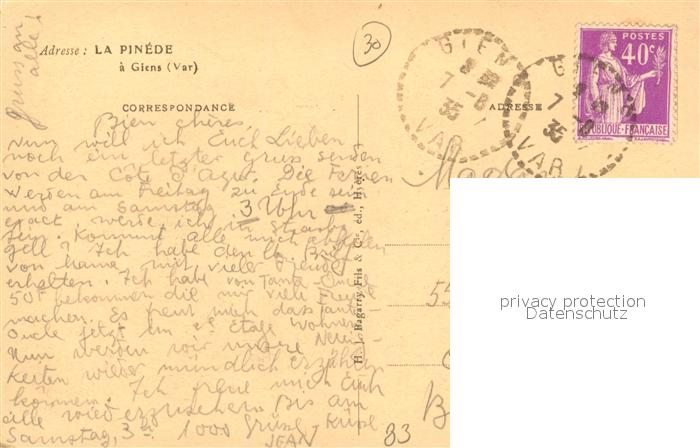 gruss an
alle!
Adresse : LA PINÉDE
à Giens (Var)
30
GIENS
7 -8
35
VAR
GIENS
7 -8
35
VAR
POSTES
40c
REPUBLIQUE-FRANÇAISE
CORRESPONDANCE
ADRESSE
Bien chères,
nun will ich Euch Lieben
noch ein letzter Gruss senden
von der Côte d'Azur. Die Ferien
werden am Freitag zu Ende sein
und am Samstag 3 Uhr
exact werde ich in
sein. Kommt alle mich abholen
gell? Ich habe den lb. Brief
von Mama mit viele Freude
erhalten. Ich habe von Tante
50f bekommen die mir viel Freude
machen. Es freut mich das Tante
Oncle jetzt im 2e Etage wohnen.
Nun werden wir unsre Neuig-
keiten wieder mündlich erzählen
können. Ich freue mich Euch
alle wiederzusehen. Bis am
Samstag, 3 1000 Grüsse Küsse
JEAN
H. Bagarry Fils & Cie, éd., Hyères
55
B
83
privacy protection
Datenschutz